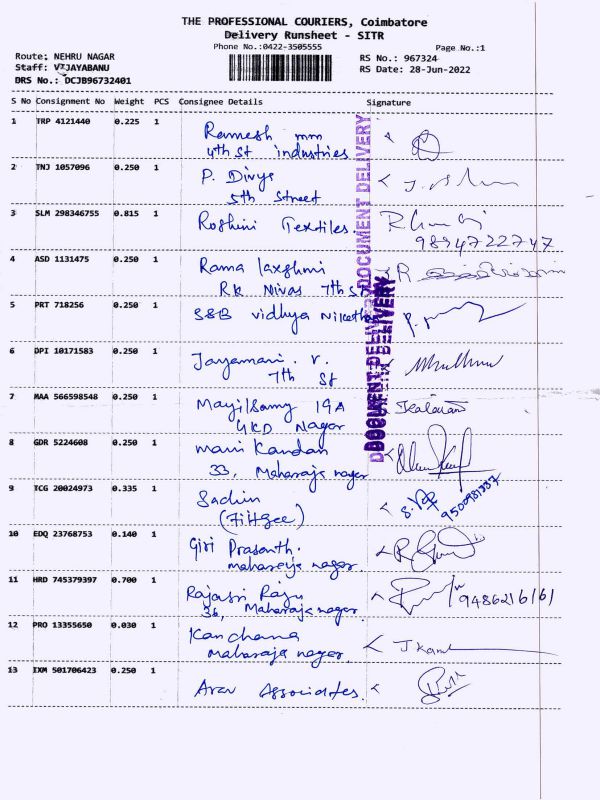 THE PROFESSIONAL COURIERS, Coimbatore
Delivery Runsheet - SITR
Phone No.:0422-3505555
Page No.:1
Route: NEHRU NAGAR
Staff: VIJAYABANU
DRS No.: DCJB96732401
RS No.: 967324
RS Date: 28-Jun-2022
S No Consignment No Weight PCS Consignee Details Signature
1 TRP 4121440 0.225 1 Ramesh mm
4th St industries
2 TNJ 1057096 0.250 1 P. Divya
5th Street
3 SLM 298346755 0.815 1 Roshini Textiles
9894722747
4 ASD 1131475 0.250 1 Rama laxshmi
RK Nivas 7th St
5 PRT 718256 0.250 1 S&B vidhya Nikethan
6 DPI 10171583 0.250 1 Jayamani. v.
7th St
7 MAA 566598548 0.250 1 Mayilsamy 19A
GKD Nagar
8 GDR 5224608 0.250 1 mani Kandan
33, Maharaja nagar
9 TCG 20024973 0.335 1 Sachin
(Fiitjee)
10 EDQ 23768753 0.140 1 Giri Prasanth.
maharaja nagar.
11 HRD 745379397 0.700 1 Rajasri Raju
36, Maharaja nagar
9486216161
12 PRO 13355650 0.030 1 Kanchana
maharaja nagar. J.Kan
13 IXM 501706423 0.250 1 Arav Associates.
DOCUMENT DELIVERY
DOCUMENT DELIVERY